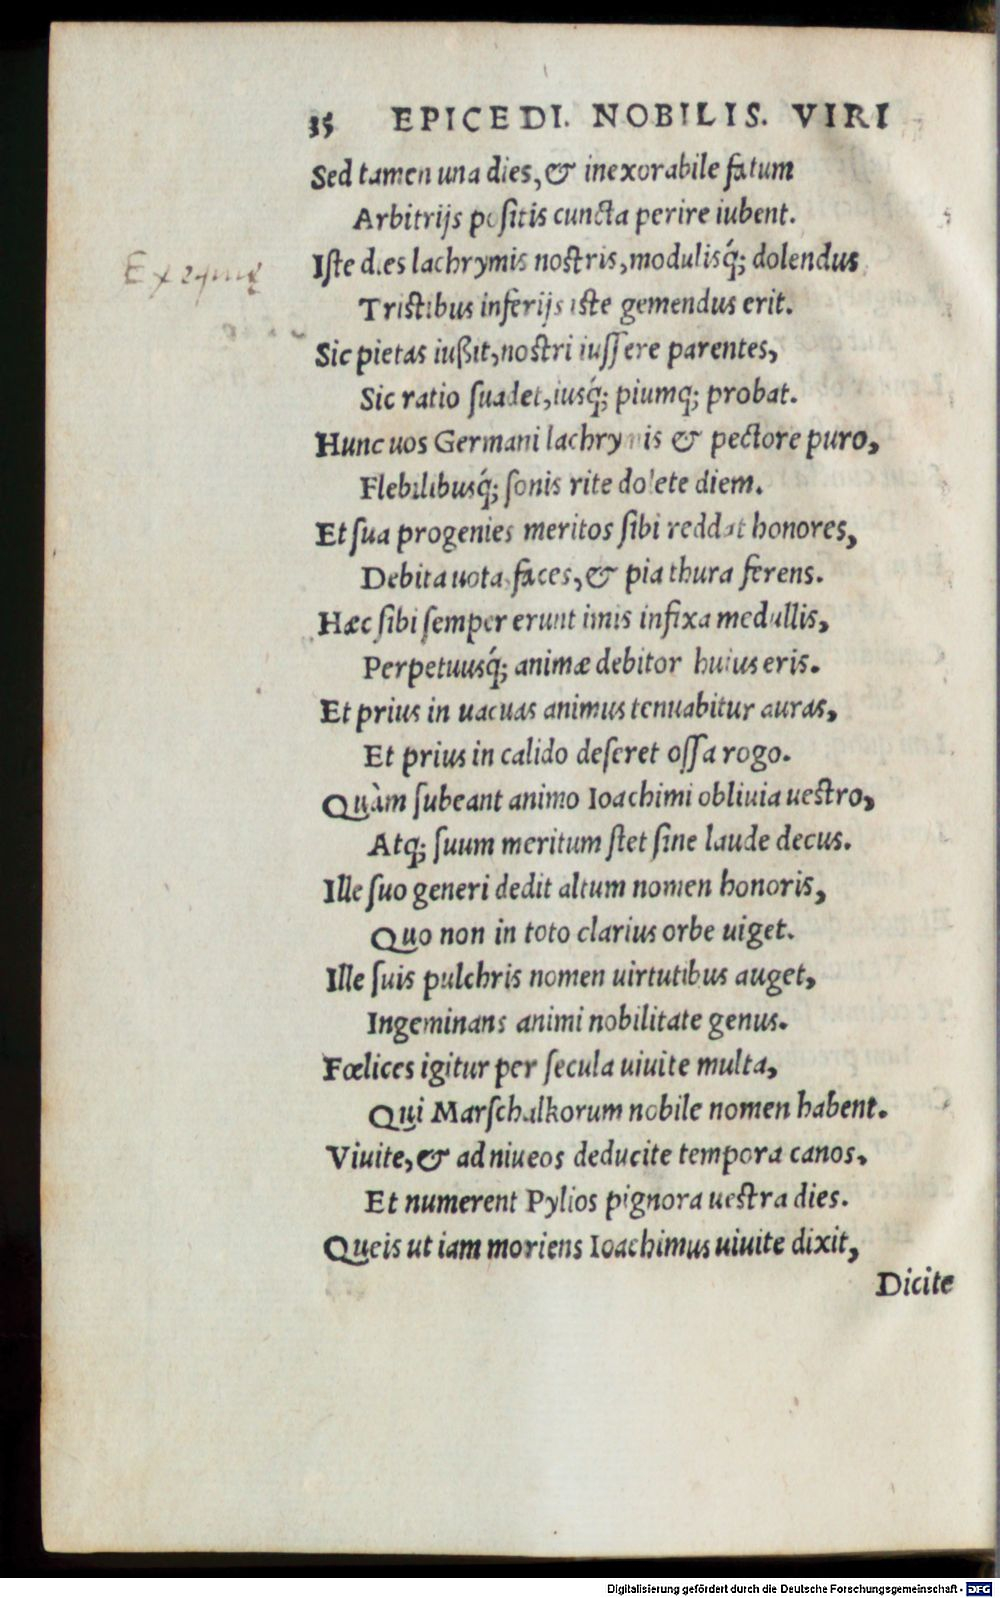 35 EPICEDI. NOBILIS. VIRI
Sed tamen una dies, & inexorabile fatum
Arbitrijs positis cuncta perire iubent.
Iste dies lachrymis nostris, modulisq́; dolendus
Tristibus inferijs iste gemendus erit.
Sic pietas iußit, nostri iussere parentes,
Sic ratio suadet, iusq́; piumq; probat.
Hunc uos Germani lachrymis & pectore puro,
Flebilibusq́; sonis rite dolete diem.
Et sua progenies meritos sibi reddat honores,
Debita uota, faces, & pia thura ferens.
Hæc sibi semper erunt imis infixa medullis,
Perpetuusq́; animæ debitor huius eris.
Et prius in uacuas animus tenuabitur auras,
Et prius in calido deseret ossa rogo.
Quàm subeant animo Ioachimi obliuia uestro,
Atq; suum meritum stet sine laude decus.
Ille suo generi dedit altum nomen honoris,
Quo non in toto clarius orbe uiget.
Ille suis pulchris nomen uirtutibus auget,
Ingeminans animi nobilitate genus.
Fœlices igitur per secula uiuite multa,
Qui Marschalkorum nobile nomen habent.
Viuite, & ad niueos deducite tempora canos,
Et numerent Pylios pignora uestra dies.
Queis ut iam moriens Ioachimus uiuite dixit,
Dicite
Digitalisierung gefördert durch die Deutsche Forschungsgemeinschaft - DFG